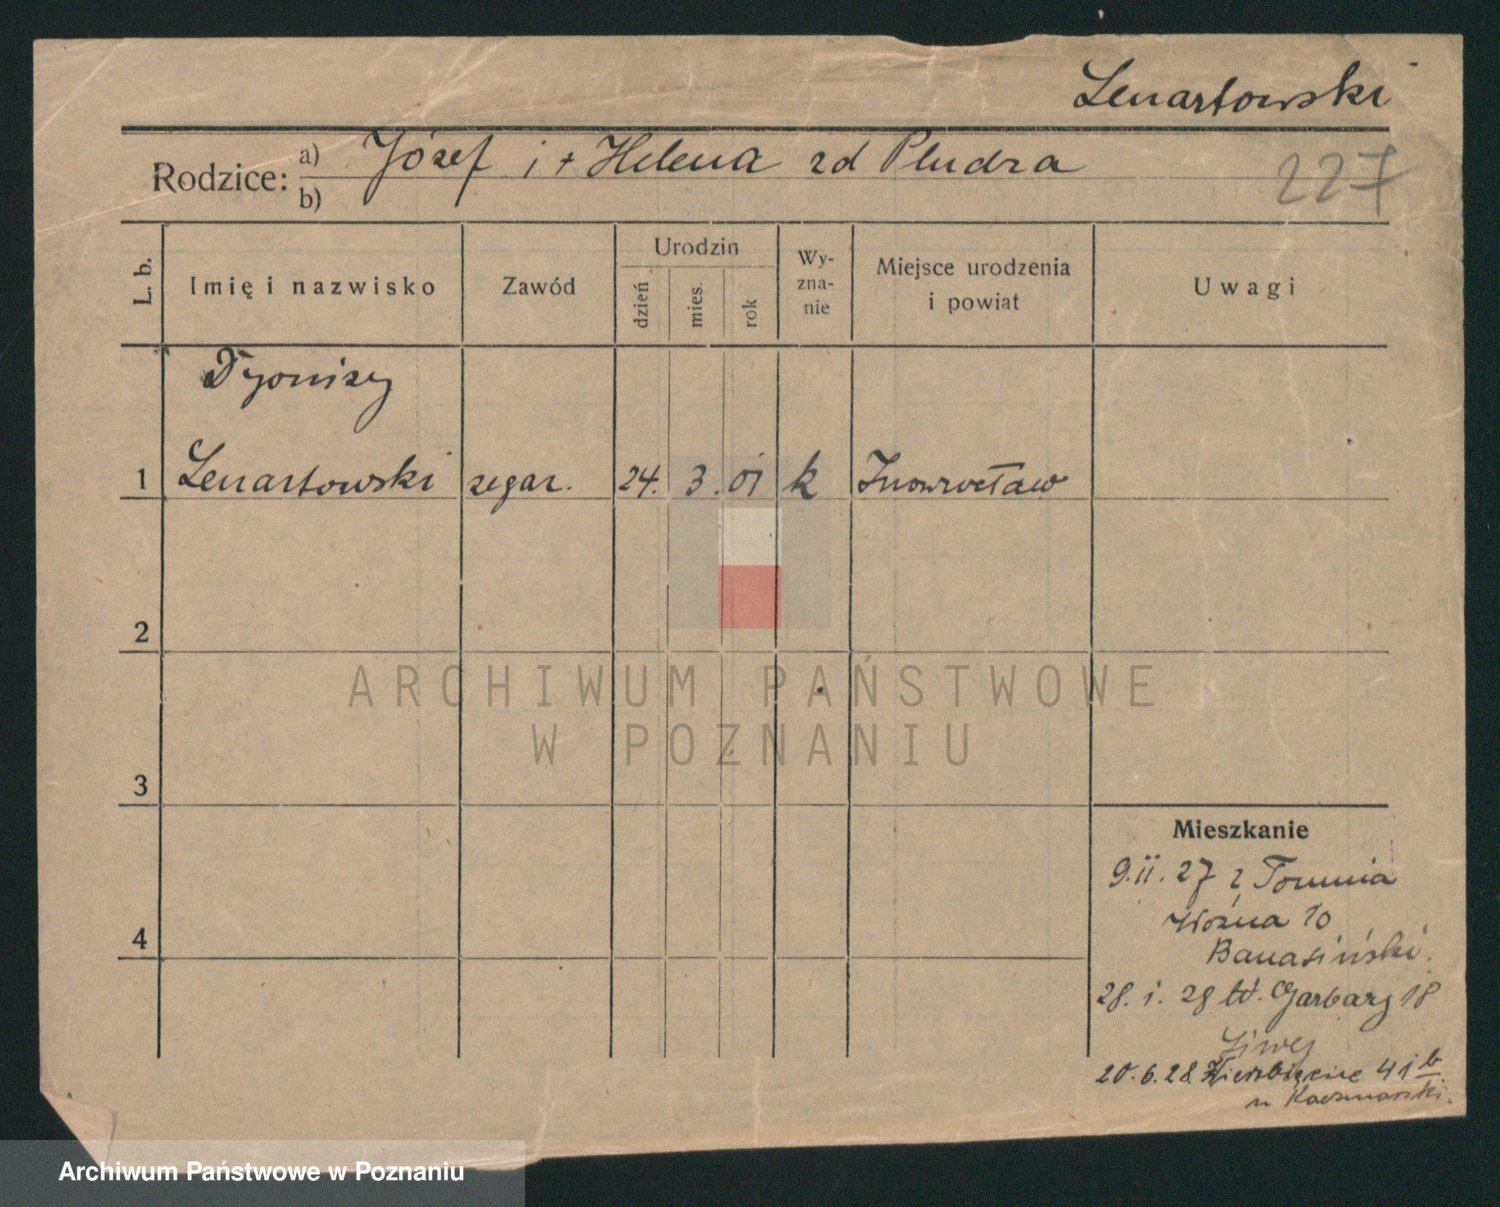 Lenartowski
Rodzice: a) Józef i + Helena zd Pludra
b)
227
L. b. Imię i nazwisko Zawód Urodzin dzień mies. rok Wy-zna-nie Miejsce urodzenia i powiat Uwagi
Dyonizy
1 Lenartowski zegar. 24. 3. 01 k Inowrocław
2
ARCHIWUM PAŃSTWOWE
W POZNANIU
3
Mieszkanie
9.II.27 z Torunia
Woźna 10
Banasiński.
4
28. i. 28 Garbary 18
20.6.28 Wierzbięcice 41 b
u Kaczmarski.
Archiwum Państwowe w Poznaniu